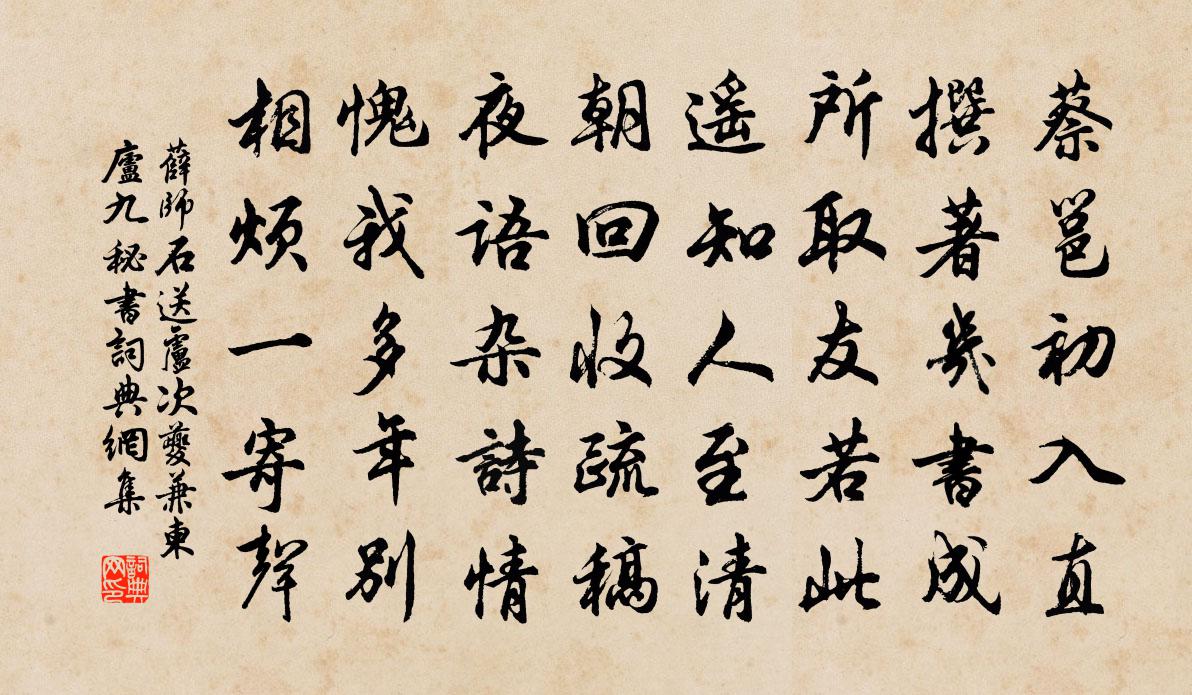 蔡邕初入直
撰著几書成
所取友若此
遥知人至清
朝回收疏稿
夜語杂詩情
愧我多年别
相烦一寄聲
薛師石送盧次夔兼柬
廬九秘書詞典網集
詞典
网印